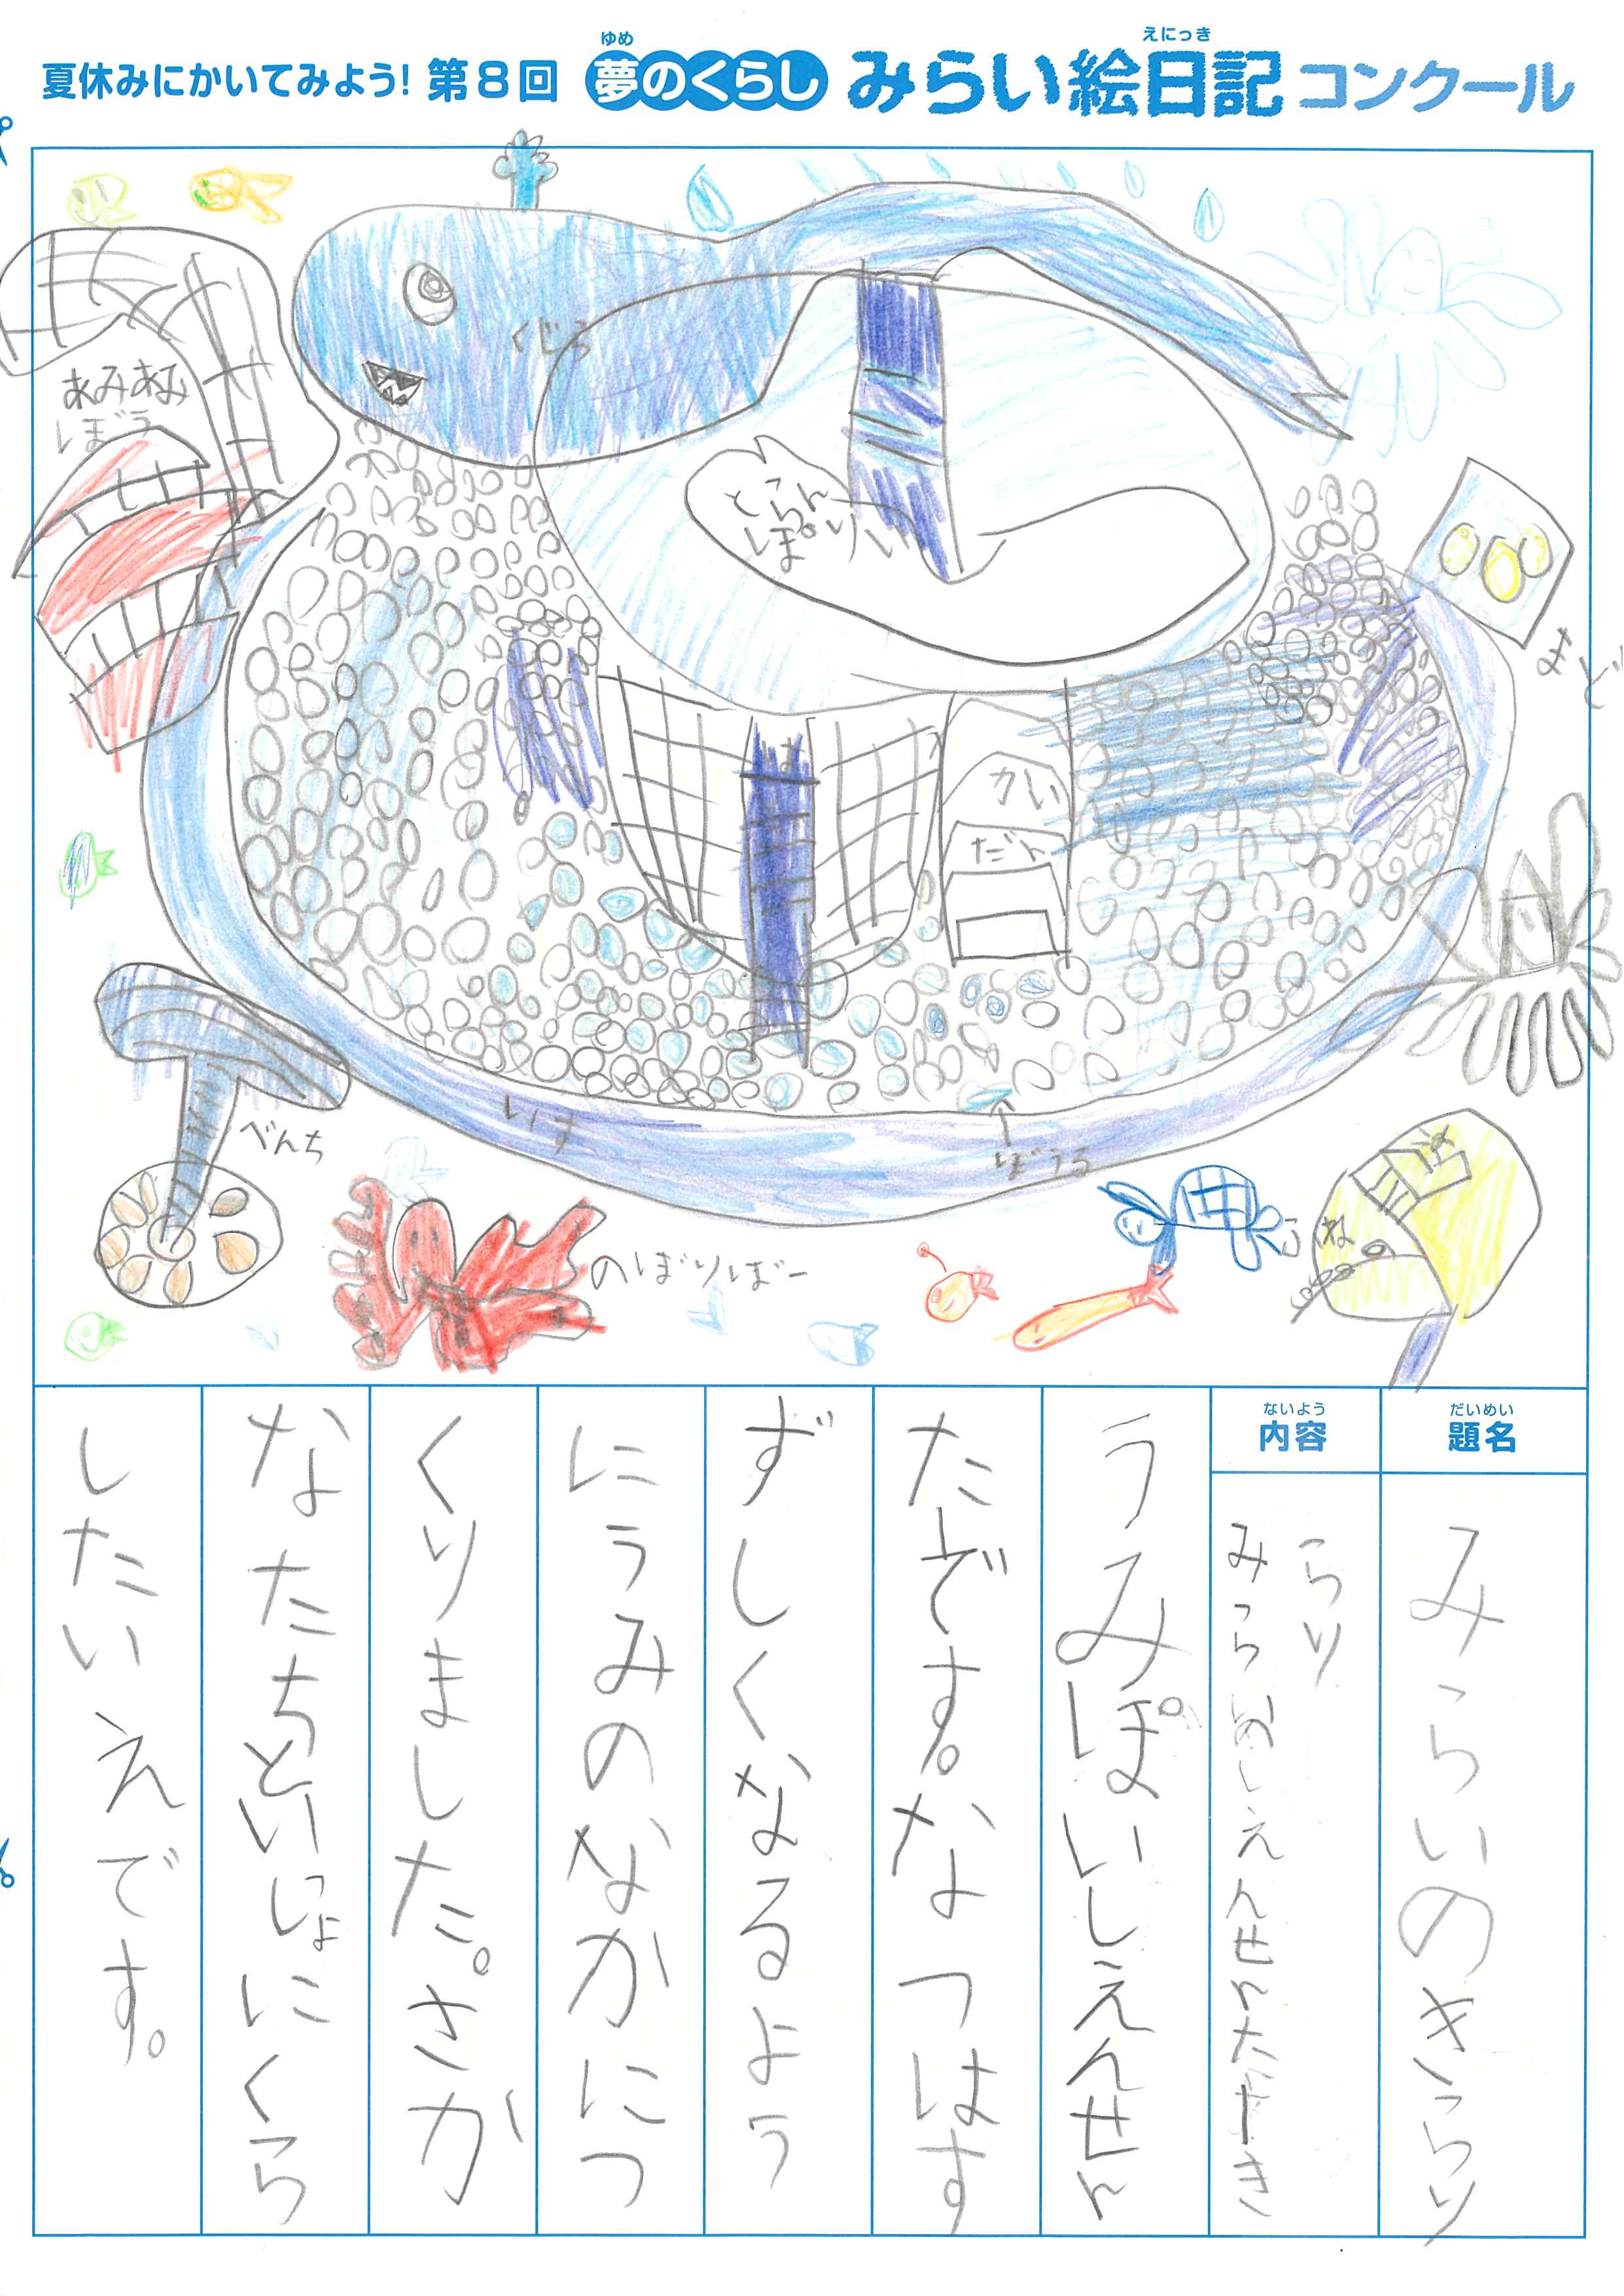 ゆめ
えにっき
夏休みにかいてみよう! 第8回 夢のくらし みらい絵日記 コンクール
くじら
あみあみ
ぼう
とらん
まど
かい
だん
いす
べんち
ぼうる
のぼりばー
だいめい
題名
みらいのきらり
ないよう
内容
らり
うみぽいしえんせん
たです。なつはす
ずしくなるよう
にうみのなかにつ
くりました。さか
なたちといっしょにくら
したいえです。